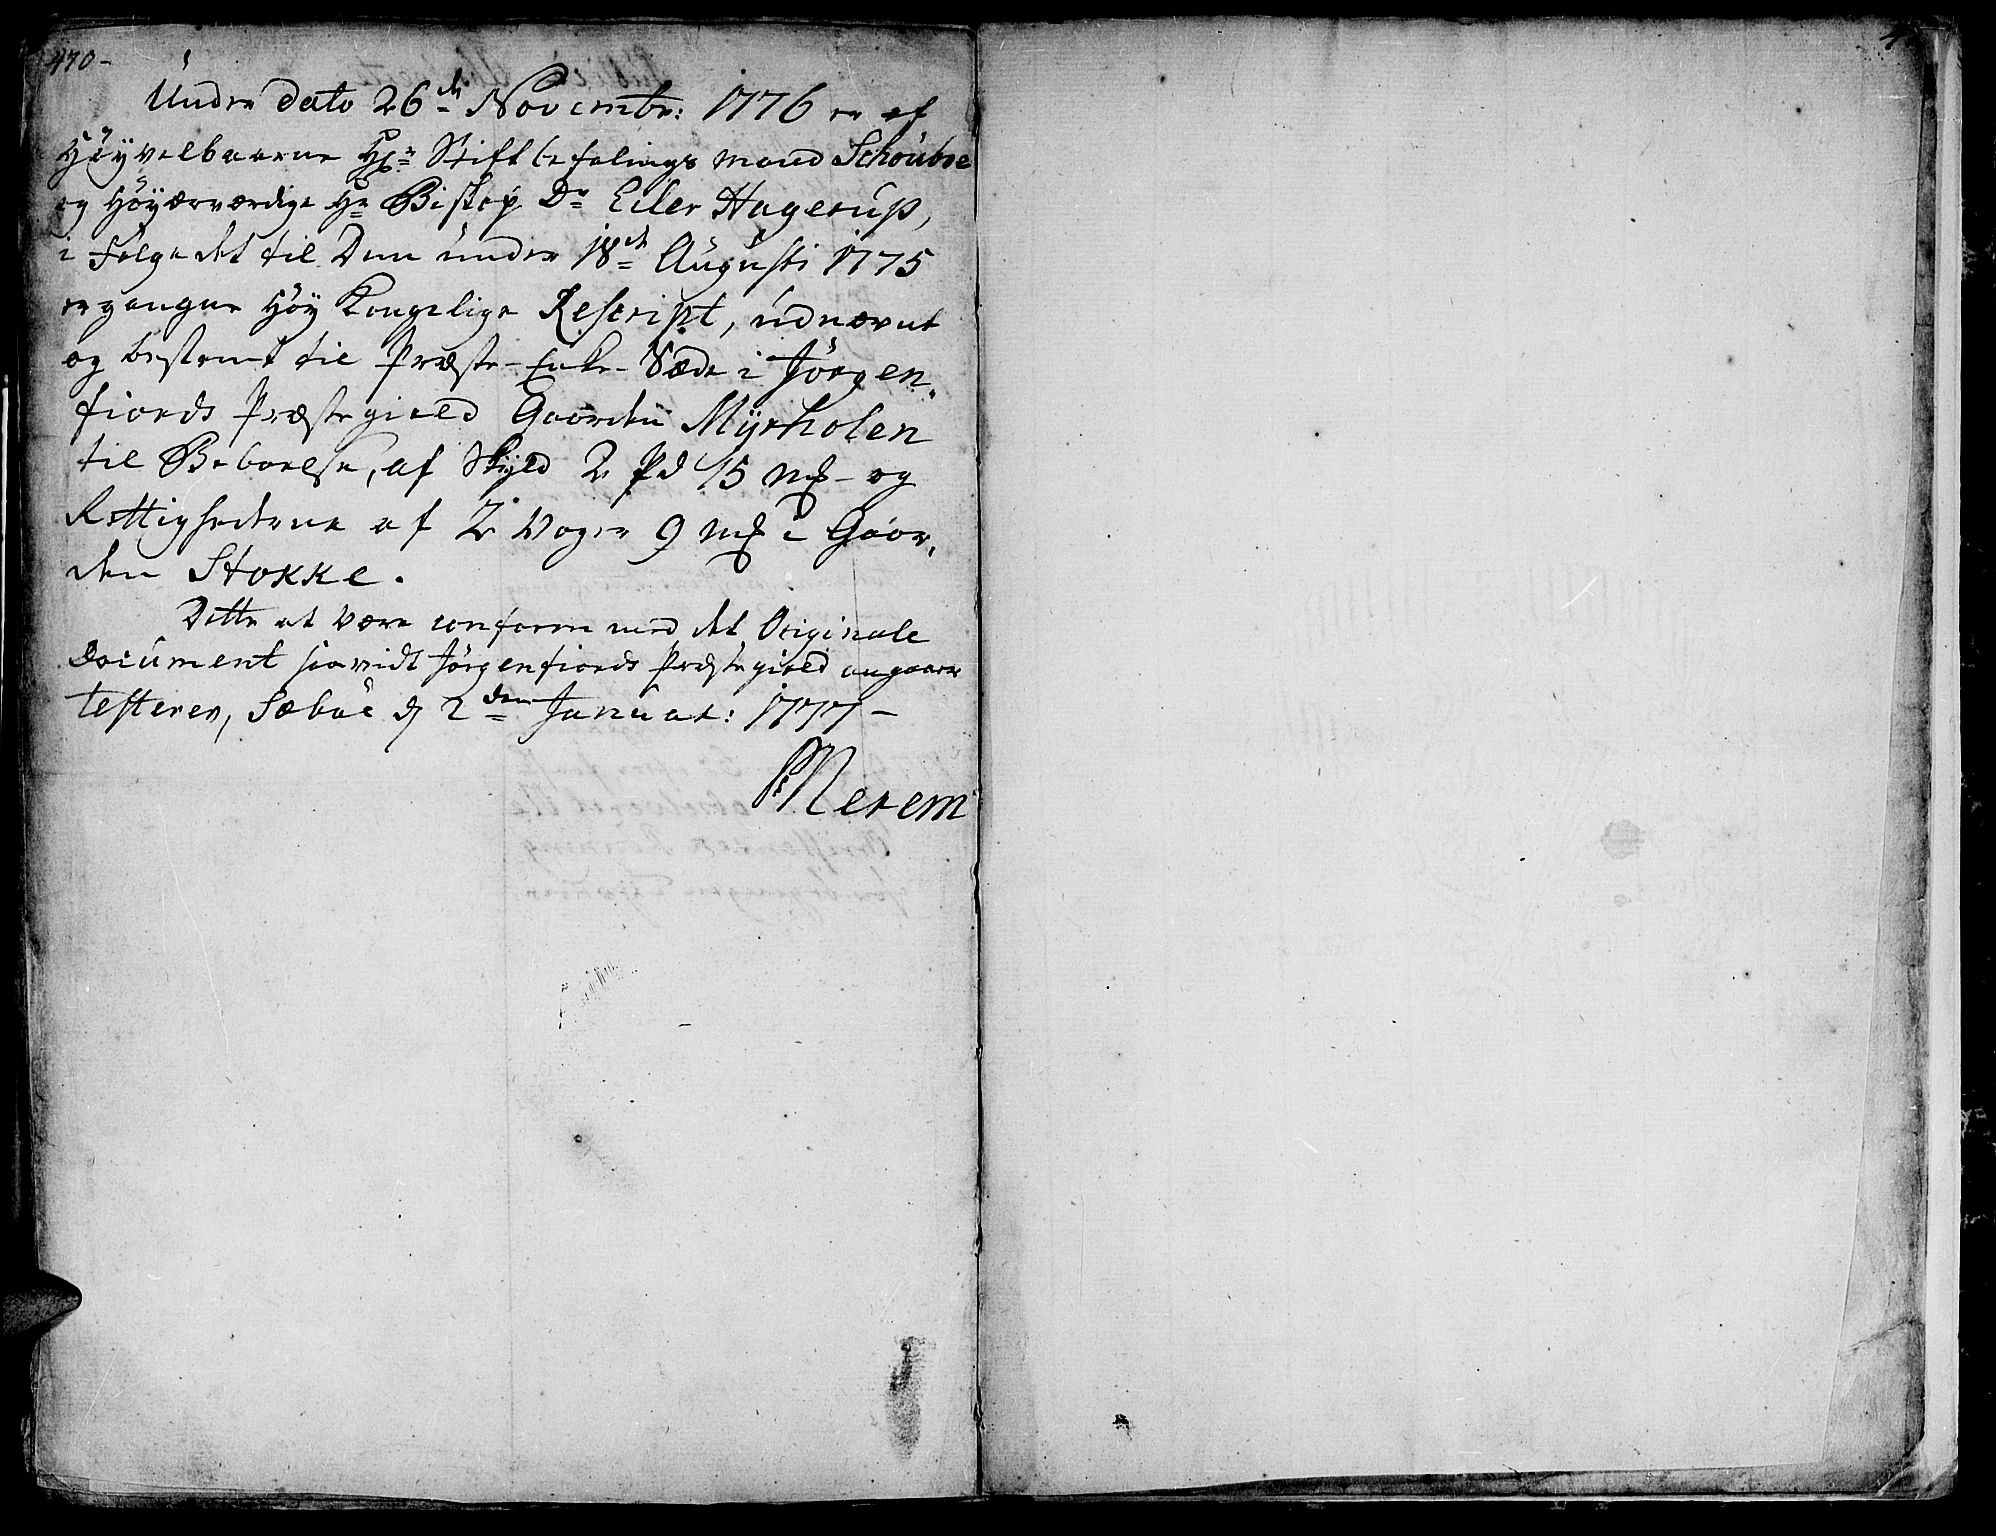 470-
Ünder Dato 26de Novembr: 1776 er af
Höyvelbaarne Hr: Stiftbefalings mand Schoubøe
og Höyærværdige Hr Biskop Dr Eiler Hagerup,
i Følge det til Dem ünder 18de Augusti 1775
ergangne Höy Kongelige Rescript, üdnævnt
og bestemt til Præste-Enke-Sæde i Jörgen,,
fiords Præstegield Gaarden Myrholen
til Beboelse, af Skyld 2 Pd 15 mk- og
Rettighederne af 2 Voger 9 mk i Gaar,,
den Stokke.
Dette at være conform med det Originale
Document saavidt Jörgenfiords Præstegield angaaer
testerer, Sæböe d 2den Januar: 1777-
Nerem